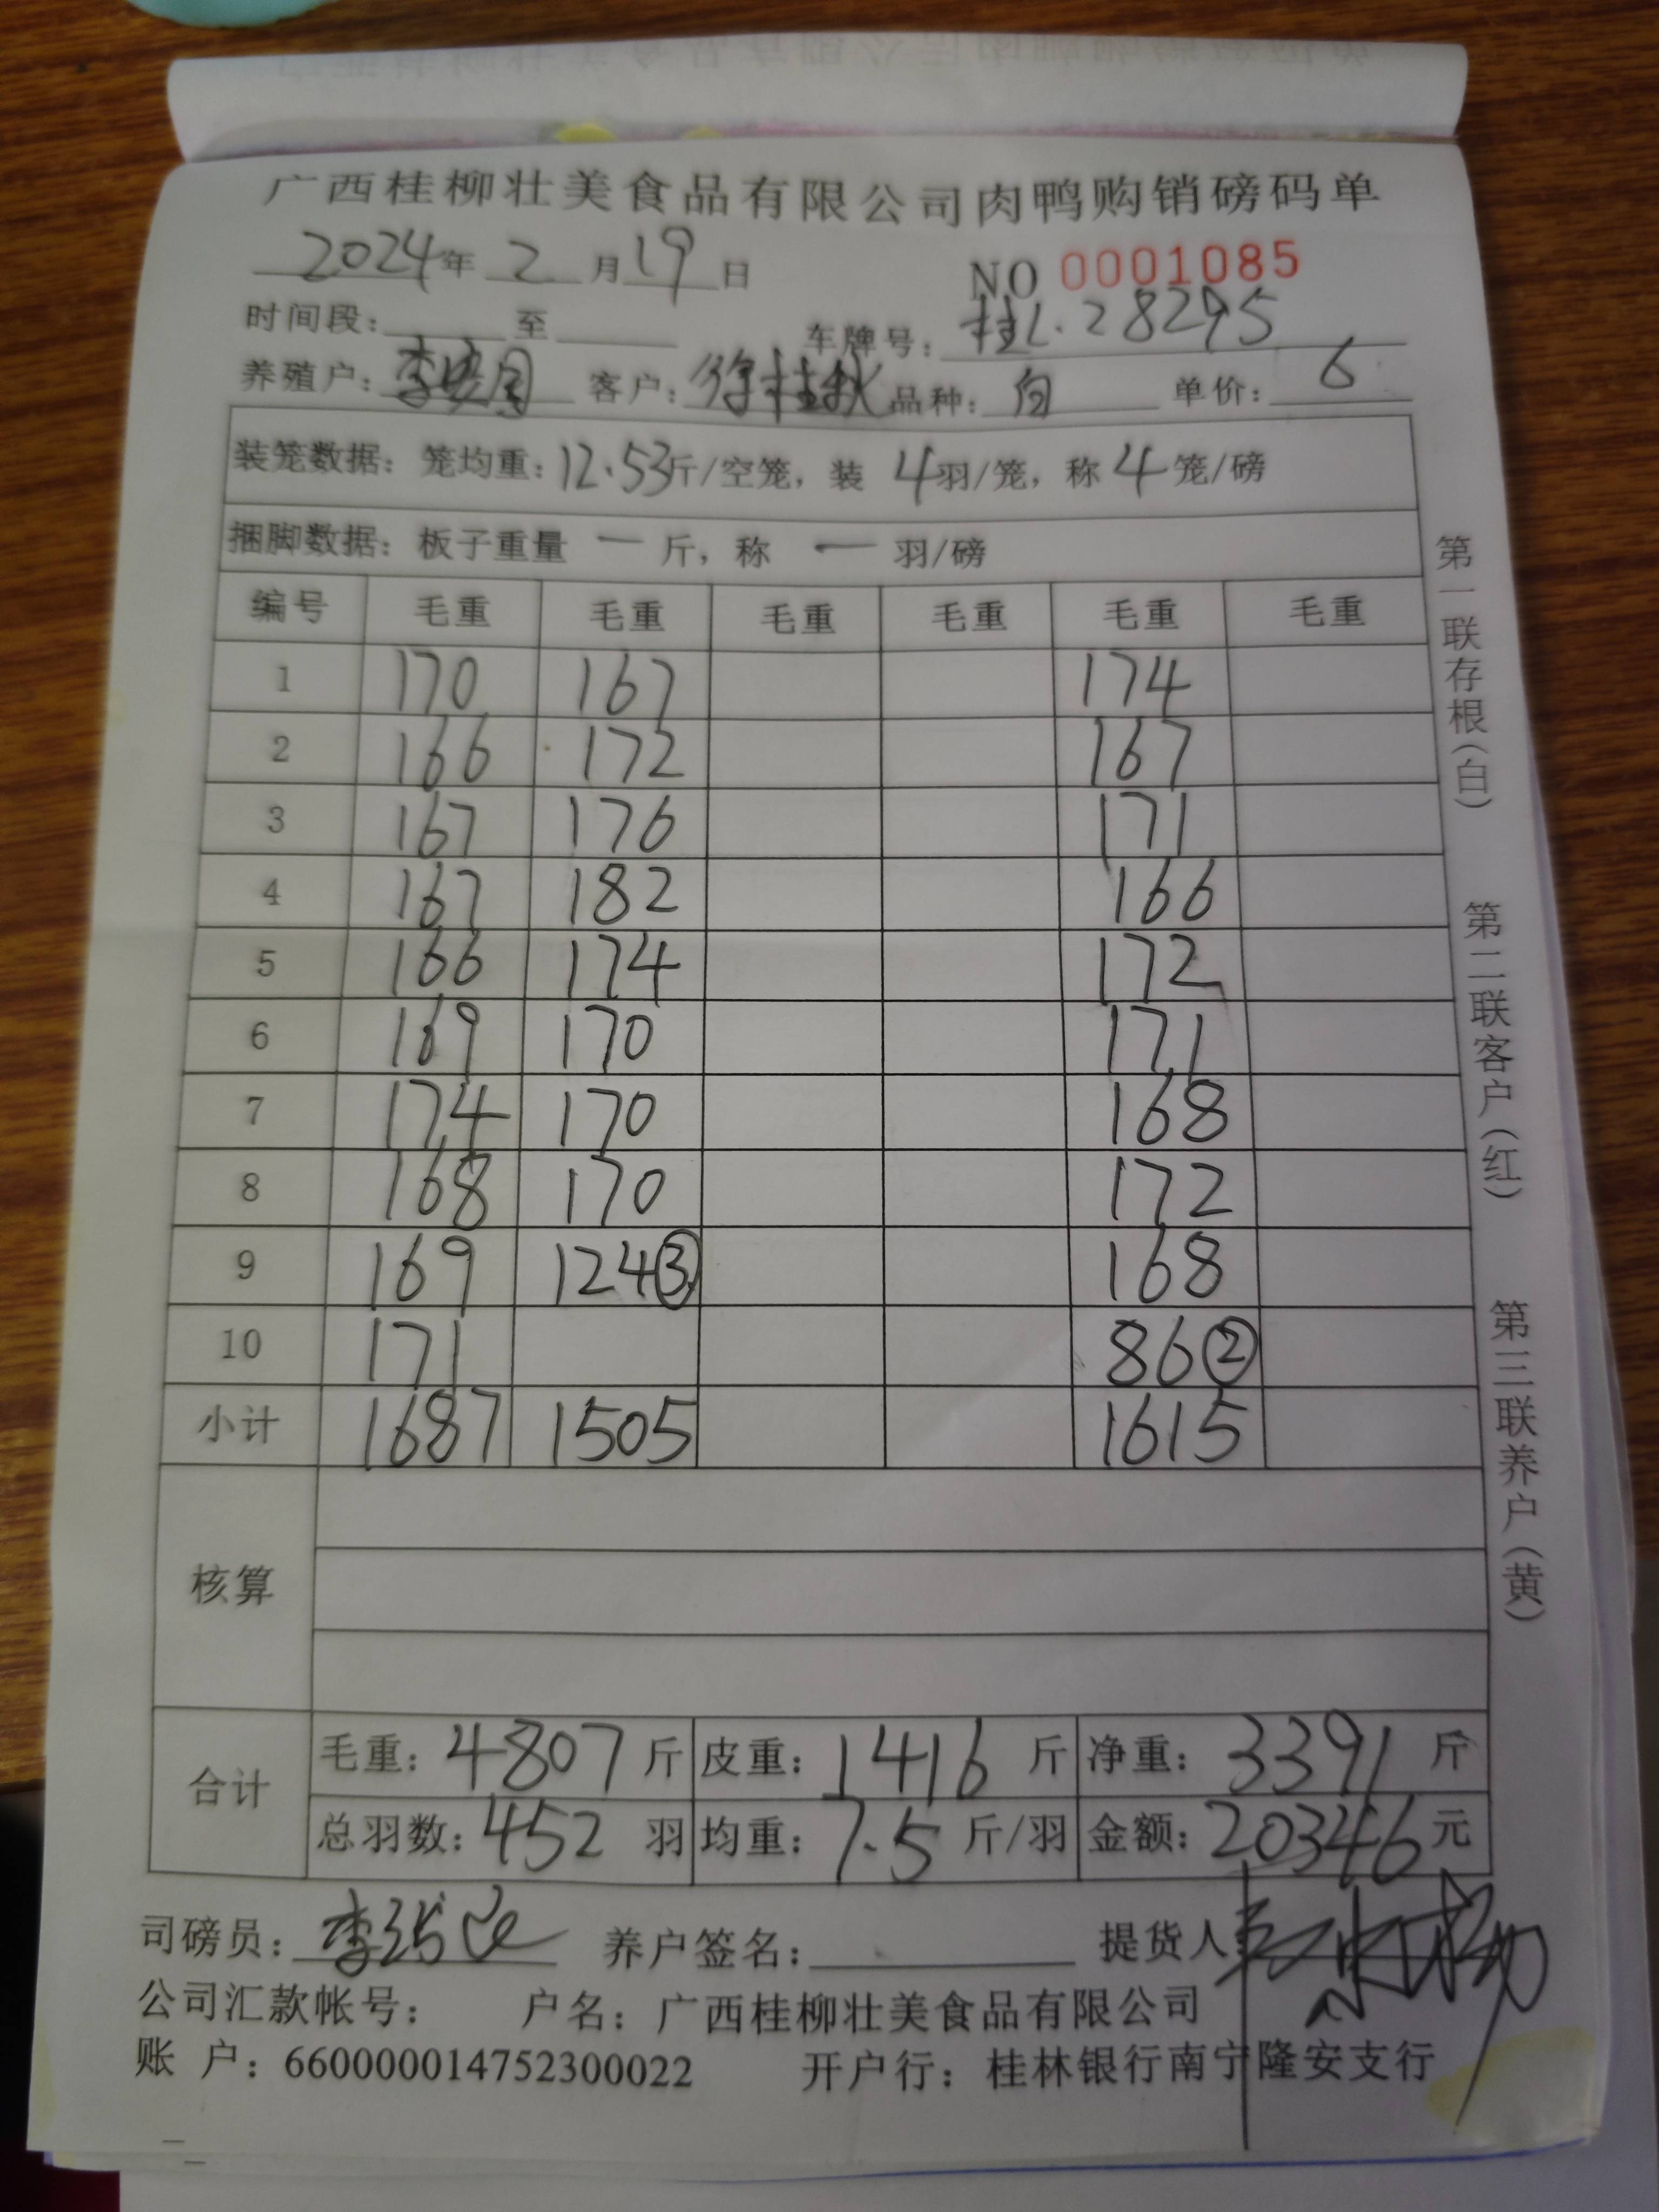 广西桂柳壮美食品有限公司肉鸭购销磅码单
2024年 2 月 19 日 NO 0001085
时间段: 至 车牌号: 桂L·28295
养殖户: 李 客户: 徐桂秋 品种: 白 单价: 6
装笼数据: 笼均重: 12.53斤/空笼, 装 4羽/笼, 称 4 笼/磅
捆脚数据: 板子重量 一 斤, 称 一 羽/磅
编号 毛重 毛重 毛重 毛重 毛重 毛重
1 170 167 174
2 166 172 167
3 167 176 171
4 167 182 166
5 166 174 172
6 169 170 171
7 174 170 168
8 168 170 172
9 169 124③ 168
10 171 86②
小计 1687 1505 1615
核算
合计
毛重: 4807 斤 皮重: 1416 斤 净重: 3391 斤
总羽数: 452 羽 均重: 7.5 斤/羽 金额: 20346 元
司磅员: 李 养户签名: 提货人
公司汇款帐号: 户名: 广西桂柳壮美食品有限公司
账 户: 660000014752300022 开户行: 桂林银行南宁隆安支行
第一联存根(白)
第二联客户(红)
第三联养户(黄)